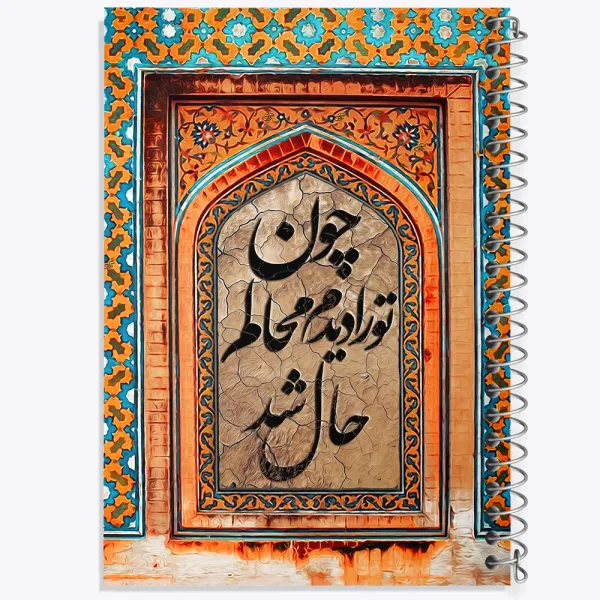 چون
تورا دیدم محالم
حال شد